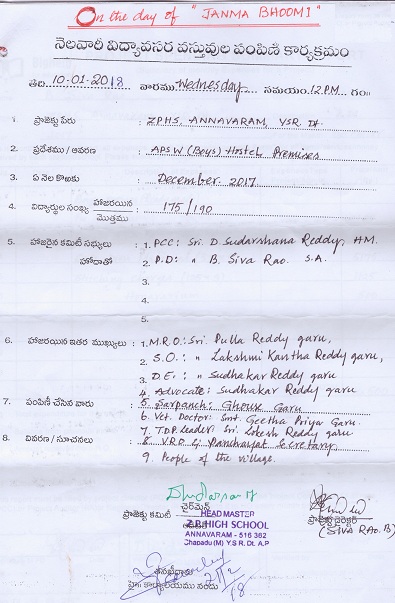 On the day of "JANMA BHOOMI"
నెలవారీ విద్యావసర వస్తువుల పంపిణీ కార్యక్రమం
తేది 10-01-2018 వారము Wednesday సమయం 12 P.M గం॥
1. ప్రాజెక్టు పేరు : ZPHS, ANNAVARAM, YSR. Dt.
2. ప్రదేశము / ఆవరణ : APSW (Boys) Hostel, Premises
3. ఏ నెల కొఱకు : December. 2017
4. విద్యార్థుల సంఖ్య హాజరయిన / మొత్తము : 175/190
5. హాజరైన కమిటీ సభ్యులు : 1. PCC: Sri. D. Sudarshana Reddy, HM.
హోదాతో 2. P.D: " B. Siva Rao. S.A.
3.
4.
5.
6. హాజరయిన ఇతర ముఖ్యులు : 1. M.R.O: Sri. Pulla Reddy garu,
2. S.O.: " Lakshmi Kantha Reddy garu,
3. D.E.: " Sudhakar Reddy garu
4. Advocate: Sudhakar Reddy garu
7. పంపిణీ చేసిన వారు : 5. Sarpanch: Ghouse Garu
6. Vet. Doctor: Smt. Geetha Priya Garu.
7. T.D.P. Leader: Sri. Lokesh Reddy garu
8. వివరణ / సూచనలు : 8. V.R.O & Panchayat Secretary
9. People of the village.
చైర్‌మెన్
ప్రాజెక్టు కమిటీ
HEAD MASTER
Z.P. HIGH SCHOOL
ANNAVARAM - 516 362
Chapadu (M) Y.S.R. Dt. A.P
ప్రాజెక్టు డైరెక్టర్
(SIVA RAO. B)